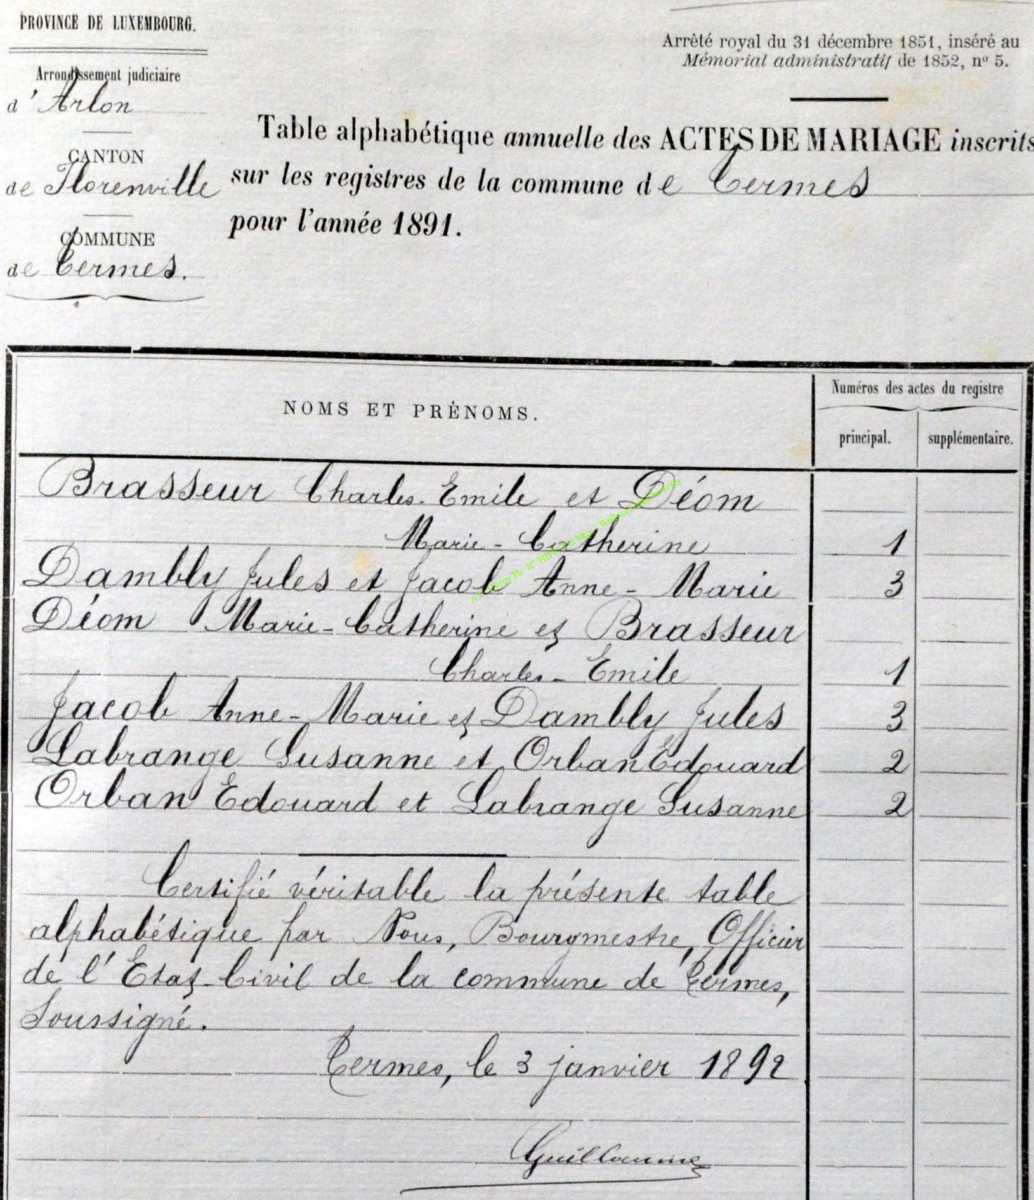 PROVINCE DE LUXEMBOURG.
Arrondissement judiciaire
d'Arlon
CANTON
de Florenville
COMMUNE
de Termes.
Arrêté royal du 31 décembre 1851, inséré au
Mémorial administratif de 1852, n° 5.
Table alphabétique annuelle des ACTES DE MARIAGE inscrits
sur les registres de la commune de Termes
pour l'année 1891.
NOMS ET PRÉNOMS.
Numéros des actes du registre
principal. supplémentaire.
Brasseur Charles-Emile et Déom
Marie-Catherine 1
Dambly Jules et Jacob Anne-Marie 3
Déom Marie-Catherine et Brasseur
Charles-Emile 1
Jacob Anne-Marie et Dambly Jules 3
Labrange Susanne et Orban Edouard 2
Orban Edouard et Labrange Susanne 2
Certifié véritable la présente table
alphabétique par Nous, Bourgmestre, Officier
de l'Etat-Civil de la commune de Termes,
Soussigné.
Termes, le 3 janvier 1892
Guillaume